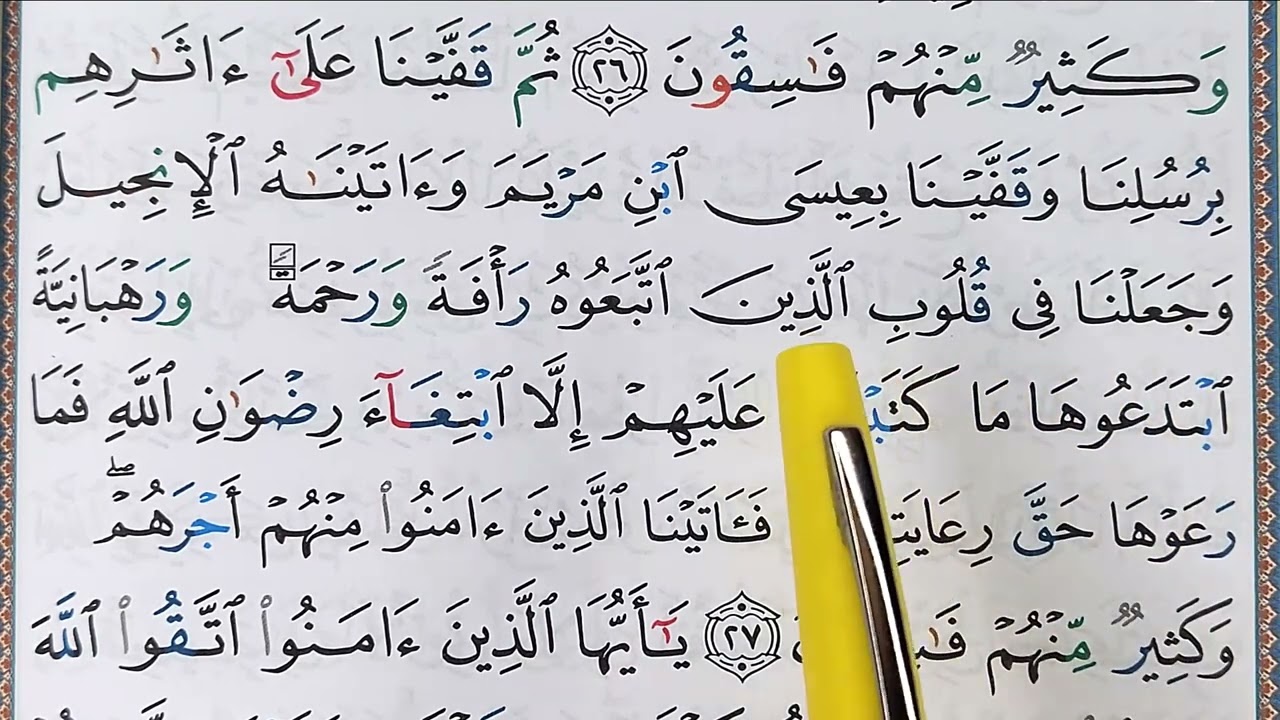 وَكَثِيرٌ مِّنْهُمْ فَٰسِقُونَ ٢٦ ثُمَّ قَفَّيْنَا عَلَىٰٓ ءَاثَٰرِهِم
بِرُسُلِنَا وَقَفَّيْنَا بِعِيسَى ٱبْنِ مَرْيَمَ وَءَاتَيْنَٰهُ ٱلْإِنجِيلَ
وَجَعَلْنَا فِى قُلُوبِ ٱلَّذِينَ ٱتَّبَعُوهُ رَأْفَةً وَرَحْمَةً وَرَهْبَانِيَّةً
ٱبْتَدَعُوهَا مَا عَلَيْهِمْ إِلَّا ٱبْتِغَآءَ رِضْوَٰنِ ٱللَّهِ فَمَا
رَعَوْهَا حَقَّ فَـَٔاتَيْنَا ٱلَّذِينَ ءَامَنُوا۟ مِنْهُمْ أَجْرَهُمْ ۖ
وَكَثِيرٌ مِّنْهُمْ ٢٧ يَٰٓأَيُّهَا ٱلَّذِينَ ءَامَنُوا۟ ٱتَّقُوا۟ ٱللَّهَ